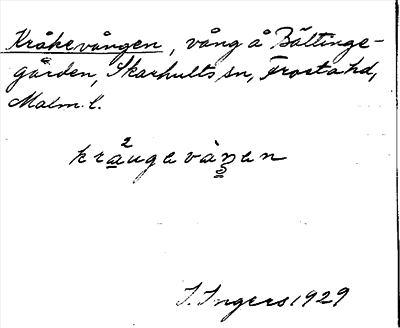 Kråkevången, vång å Bältinge-
gården, Skarhults sn, Frosta hd,
Malm. l.
kråugavàŋen
I. Ingers 1929